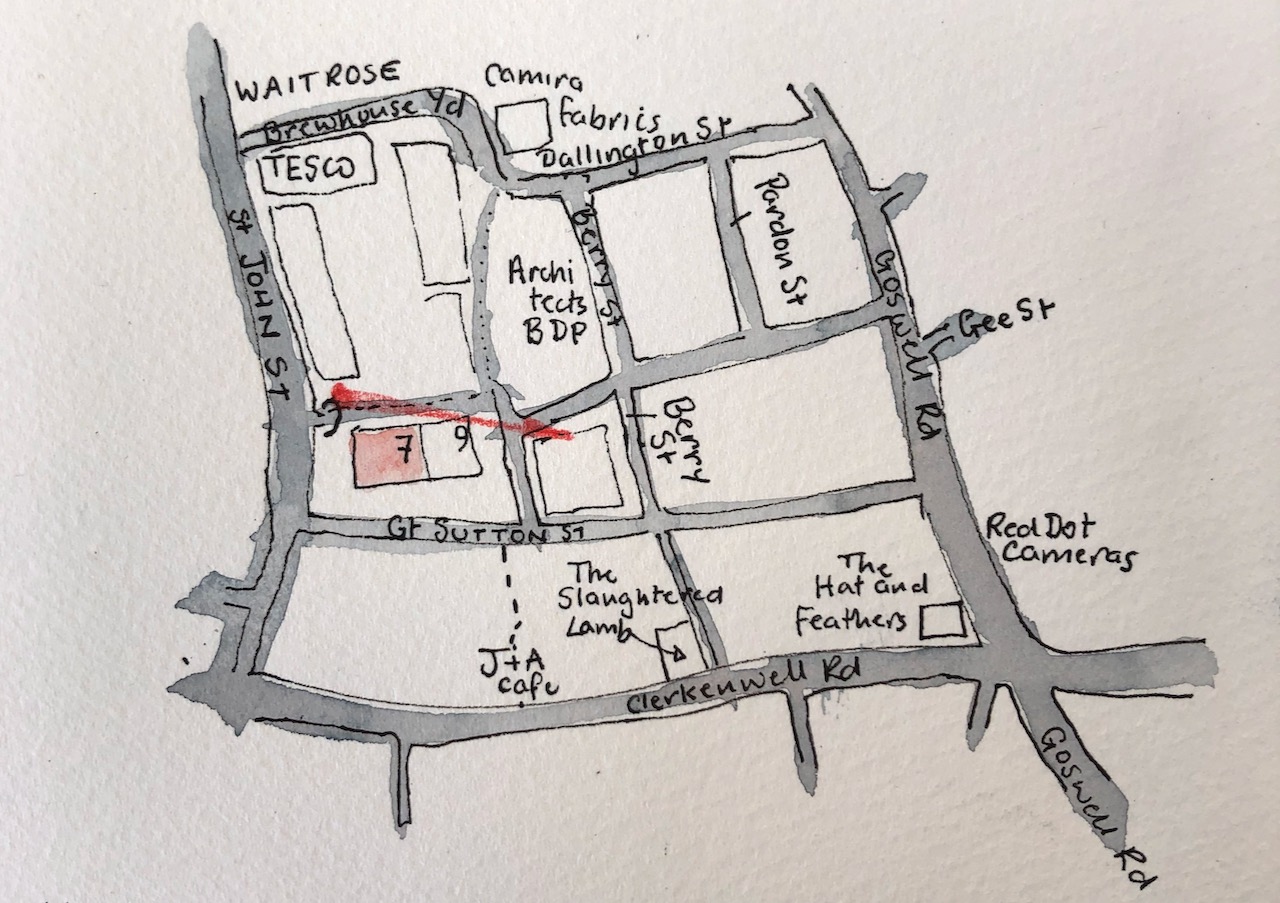 WAITROSE
Camira
Fabrics
Brewhouse Yd
TESCO
Dallington St
St JOHN ST
Archi
tects
BDP
Berry St
Pardon St
Goswell Rd
Gee St
7
9
Berry
St
Gt SUTTON ST
Red Dot
Cameras
The
Slaughtered
Lamb
The
Hat and
Feathers
J+A
cafe
Clerkenwell Rd
Goswell Rd